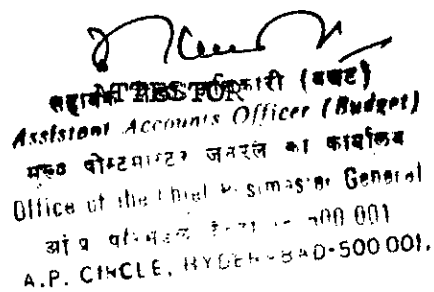 सहायक लेखा अधिकारी (बजट)
ATTESTOR
Assistant Accounts Officer (Budget)
मुख्य पोस्टमास्टर जनरल का कार्यालय
Office of the Chief Postmaster General
500 001
A.P. CIRCLE, HYDERABAD-500 001.